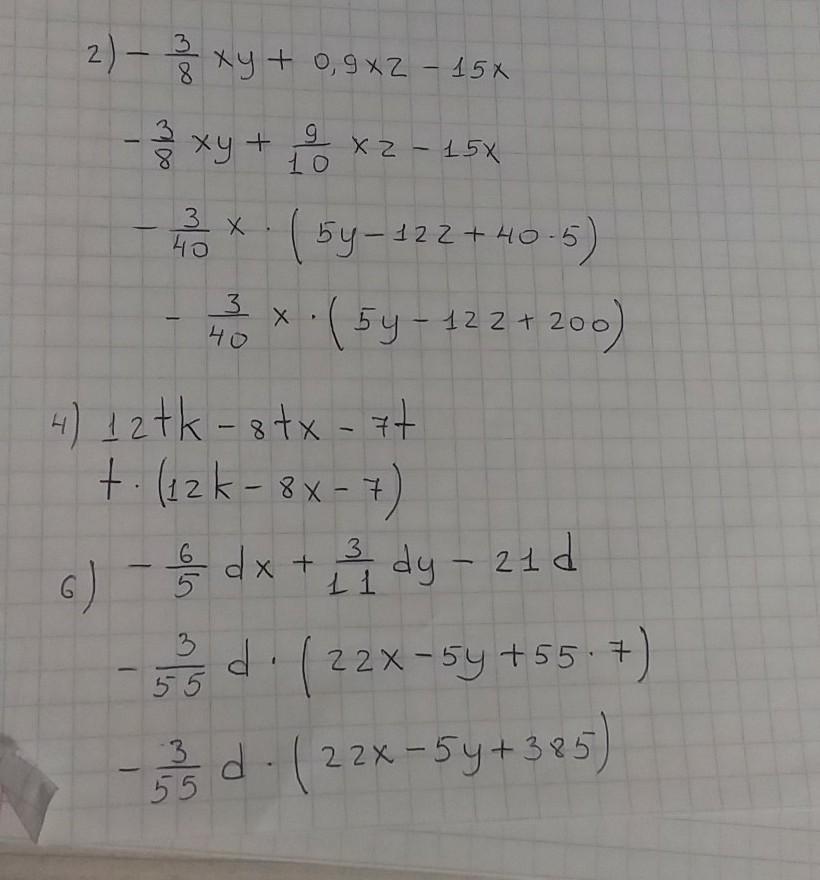 2) - 3/8 xy + 0,9xz - 15x
- 3/8 xy + 9/10 xz - 15x
- 3/40 x · (5y - 12z + 40·5)
- 3/40 x · (5y - 12z + 200)
4) 12tk - 8tx - 7t
t · (12k - 8x - 7)
6) - 6/5 dx + 3/11 dy - 21d
- 3/55 d · (22x - 5y + 55·7)
- 3/55 d · (22x - 5y + 385)